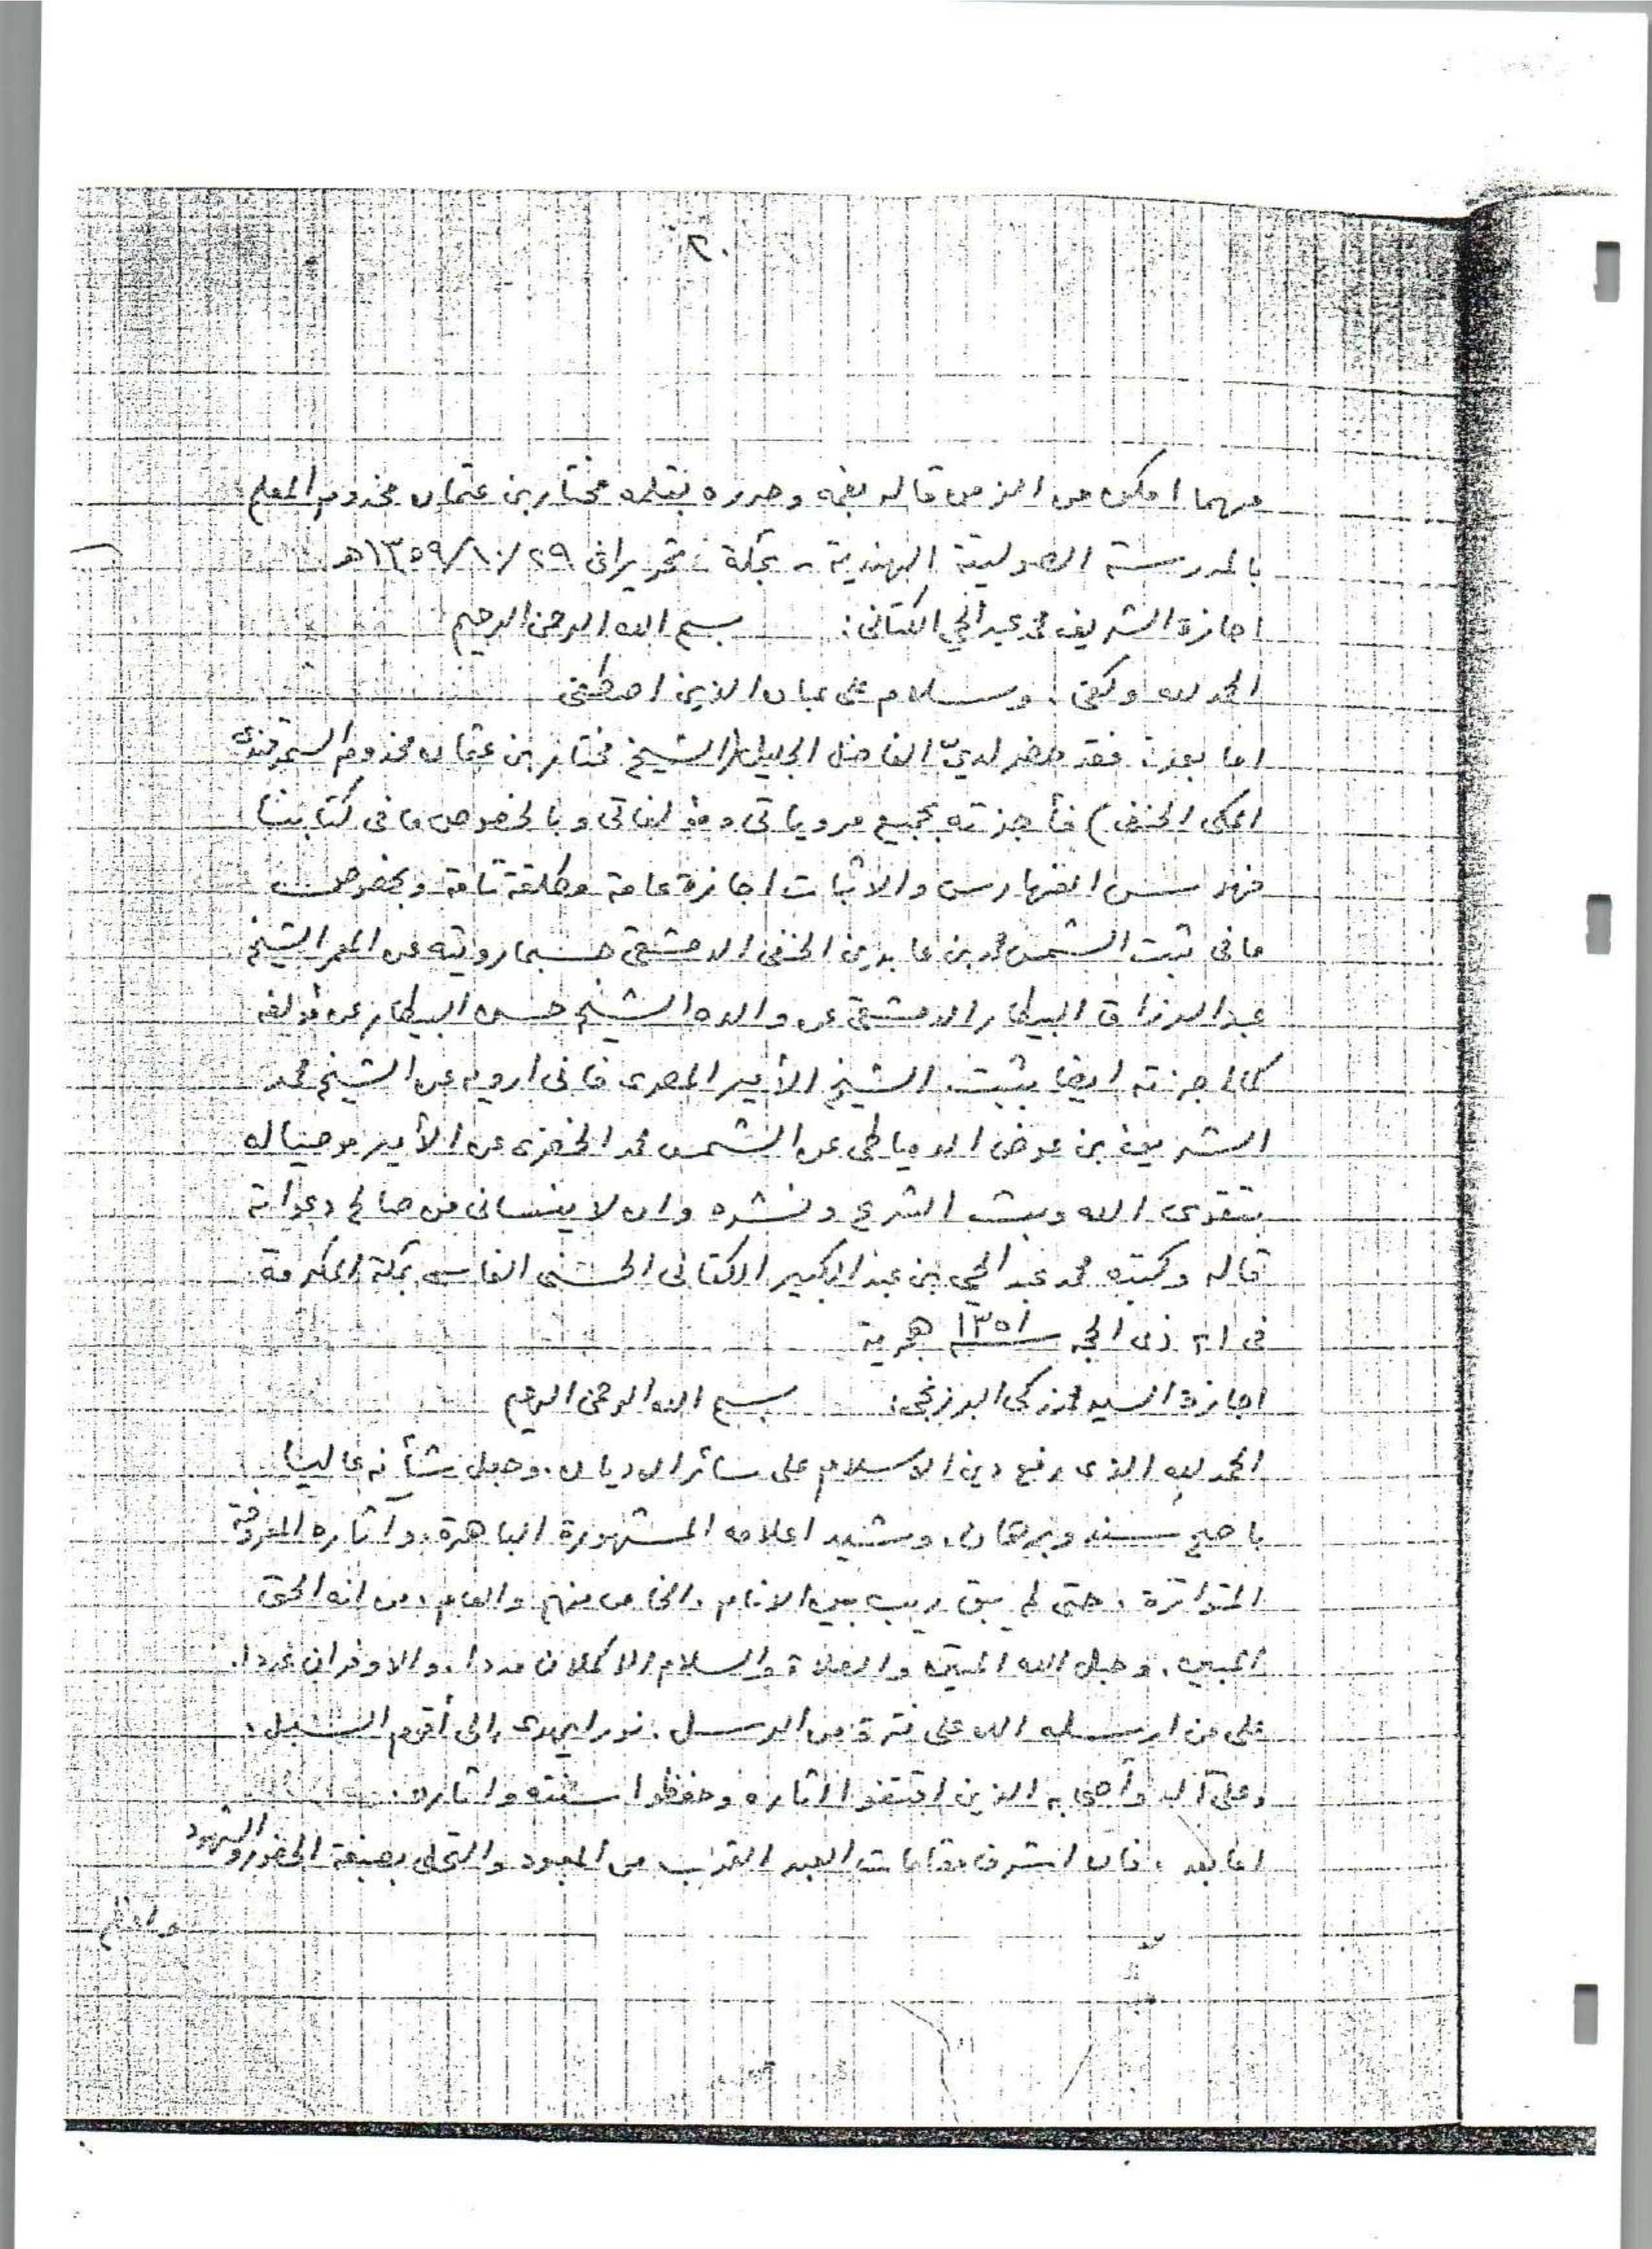 ٢٠
مهما امكن من الزمن قاله بفمه وحرره بقلمه مختار بن عثمان مخدوم المعلم
بالمدرسة الصولتية الهندية - بمكة - تحريرا في ٢٩/١٠/١٣٥٩هـ
اجازة الشريف محمد عبد الحي الكتاني: بسم الله الرحمن الرحيم
الحمد لله وكفى . وسلام على عباده الذين اصطفى
اما بعد: فقد حضر لديّ الفاضل الجليل (الشيخ مختار بن عثمان مخدوم السمرقندي
المكي الحنفي) فأجزته بجميع مروياتي ومؤلفاتي وبالخصوص ما في كتابنا
فهرس الفهارس والاثبات اجازة عامة مطلقة تامة وبخصوص
ما في ثبت الشمس محمد بن عابدين الحنفي الدمشقي حسبما رويته عن المعمر الشيخ
عبد الرزاق البيطار الدمشقي عن والده الشيخ حسن البيطار عن مؤلفه
كما اجزته ايضا بثبت الشيخ الأمير المصري فاني أرويه عن الشيخ محمد
الشريف بن عوض الدمياطي عن الشمس محمد الخضري عن الأمير موصيا له
بتقوى الله وبث الشرع ونشره وان لا ينساني من صالح دعواته
قاله وكتبه محمد عبد الحي بن عبد الكبير الكتاني الحسني الفاسي بمكة المكرمة
في ٢١ ذي الحجه ١٣٥١ هجرية
اجازة السيد محمد زكي البرزنجي: بسم الله الرحمن الرحيم
الحمد لله الذي رفع دين الاسلام على سائر الاديان . وجعل شأنه عاليا
باصح سند وبرهان . وشيد اعلامه المشهورة الباهرة . وآثاره المعروفة
المتواترة . حتى لم يبق ريب بين الانام . الخاص منهم والعام . من انه الحق
المبين . وحبل الله المتين والصلاة والسلام الاكملان مددا . والاوفران عددا .
على من ارسله الله على فترة من الرسل . نورا يهدي إلى أقوم السبل .
وعلى آله وأصحابه الذين اقتفوا آثاره وحفظوا سنته واثاره .
اما بعد . فان اشرف مقامات العبد القرب من المعبود والتحلي بصبغة الحضور والشهود